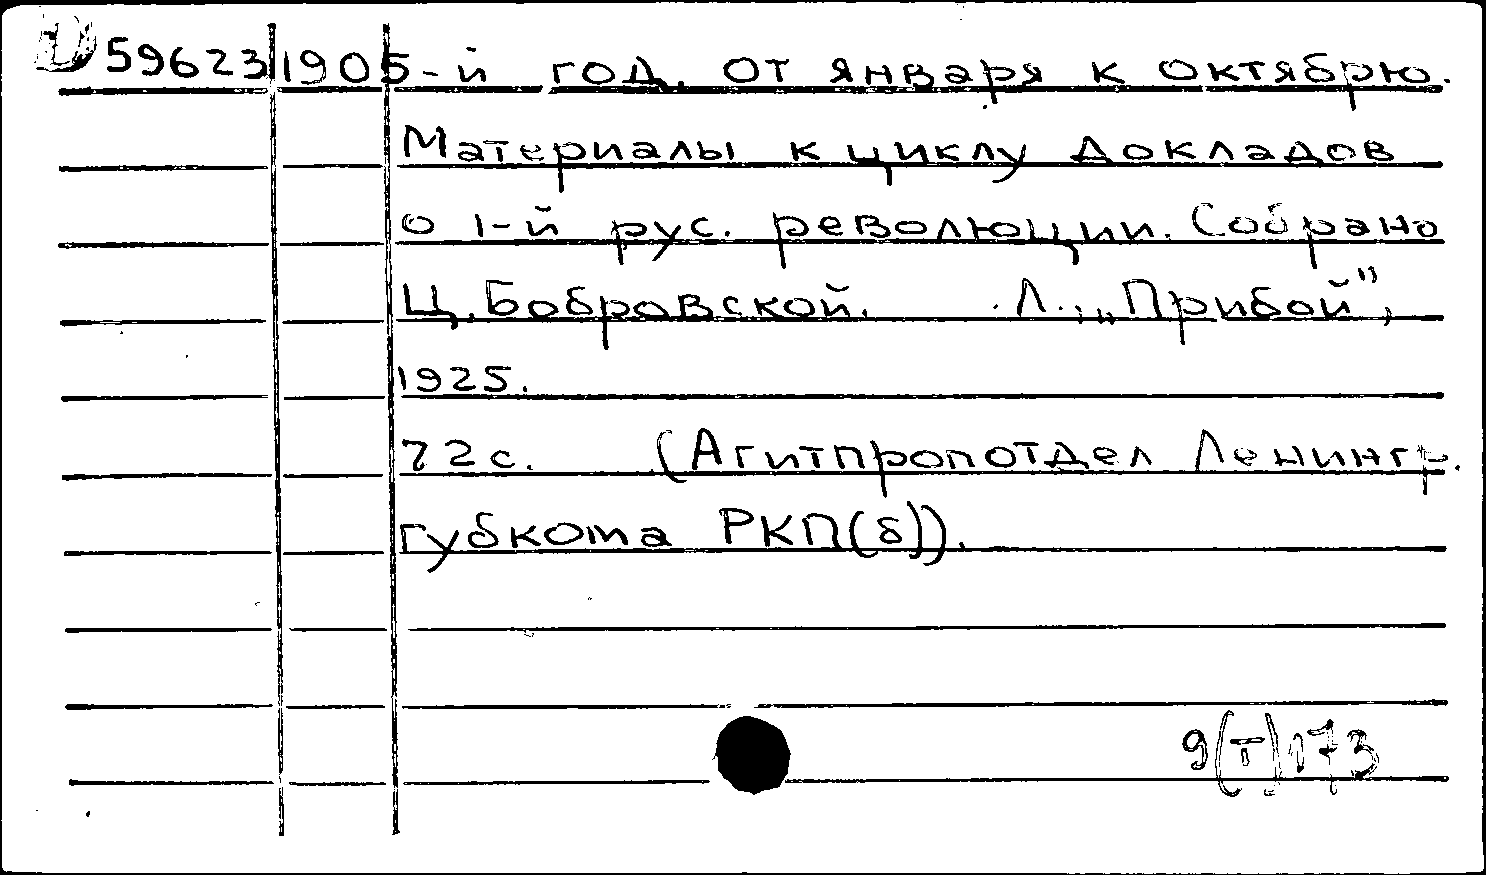 D 59623 1905-й год. От января к октябрю.
Материалы к циклу докладов
о 1-й рус. революции. Собрано
Ц. Бобровской. Л., „Прибой",
1925.
72 с. (Агитпропотдел Ленингр.
губкома РКП(б)).
9(Т)173